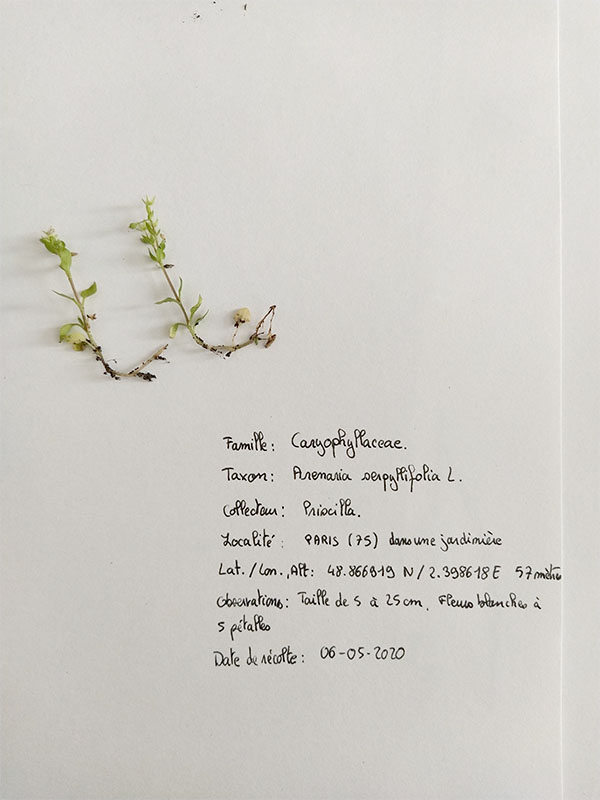 Famille: Caryophyllaceae.
Taxon: Arenaria serpyllifolia L.
Collecteur: Priscilla.
Localité: PARIS (75) dans une jardinière
Lat./Lon., Alt: 48.866919 N/2.398618 E 57 mètres
Observations: Taille de 5 à 25 cm. Fleurs blanches à
5 pétales
Date de récolte: 06-05-2020